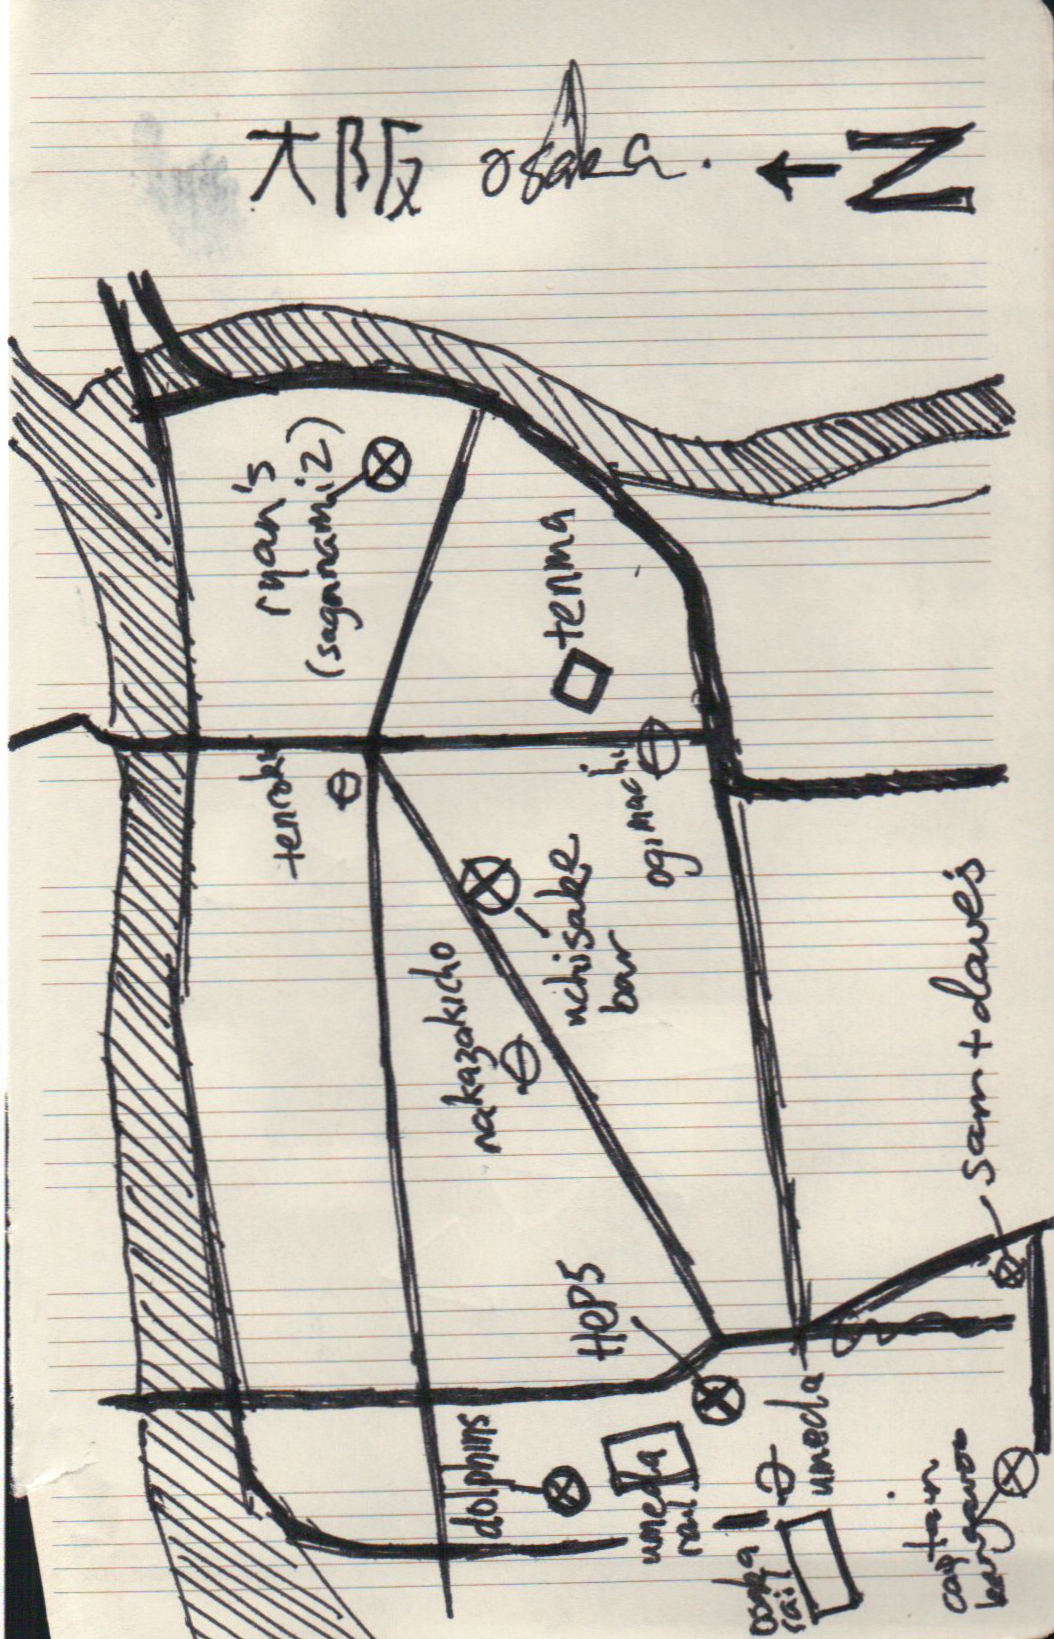 大阪 osaka.
← N
ryan's
(sagannami?)
tenma
tenroku
ogimachi
uchisake
bar
nakazakicho
sam + dave's
HEP5
dolphins
umeda
rail
umeda
osaka
rail
captain
kangaroo